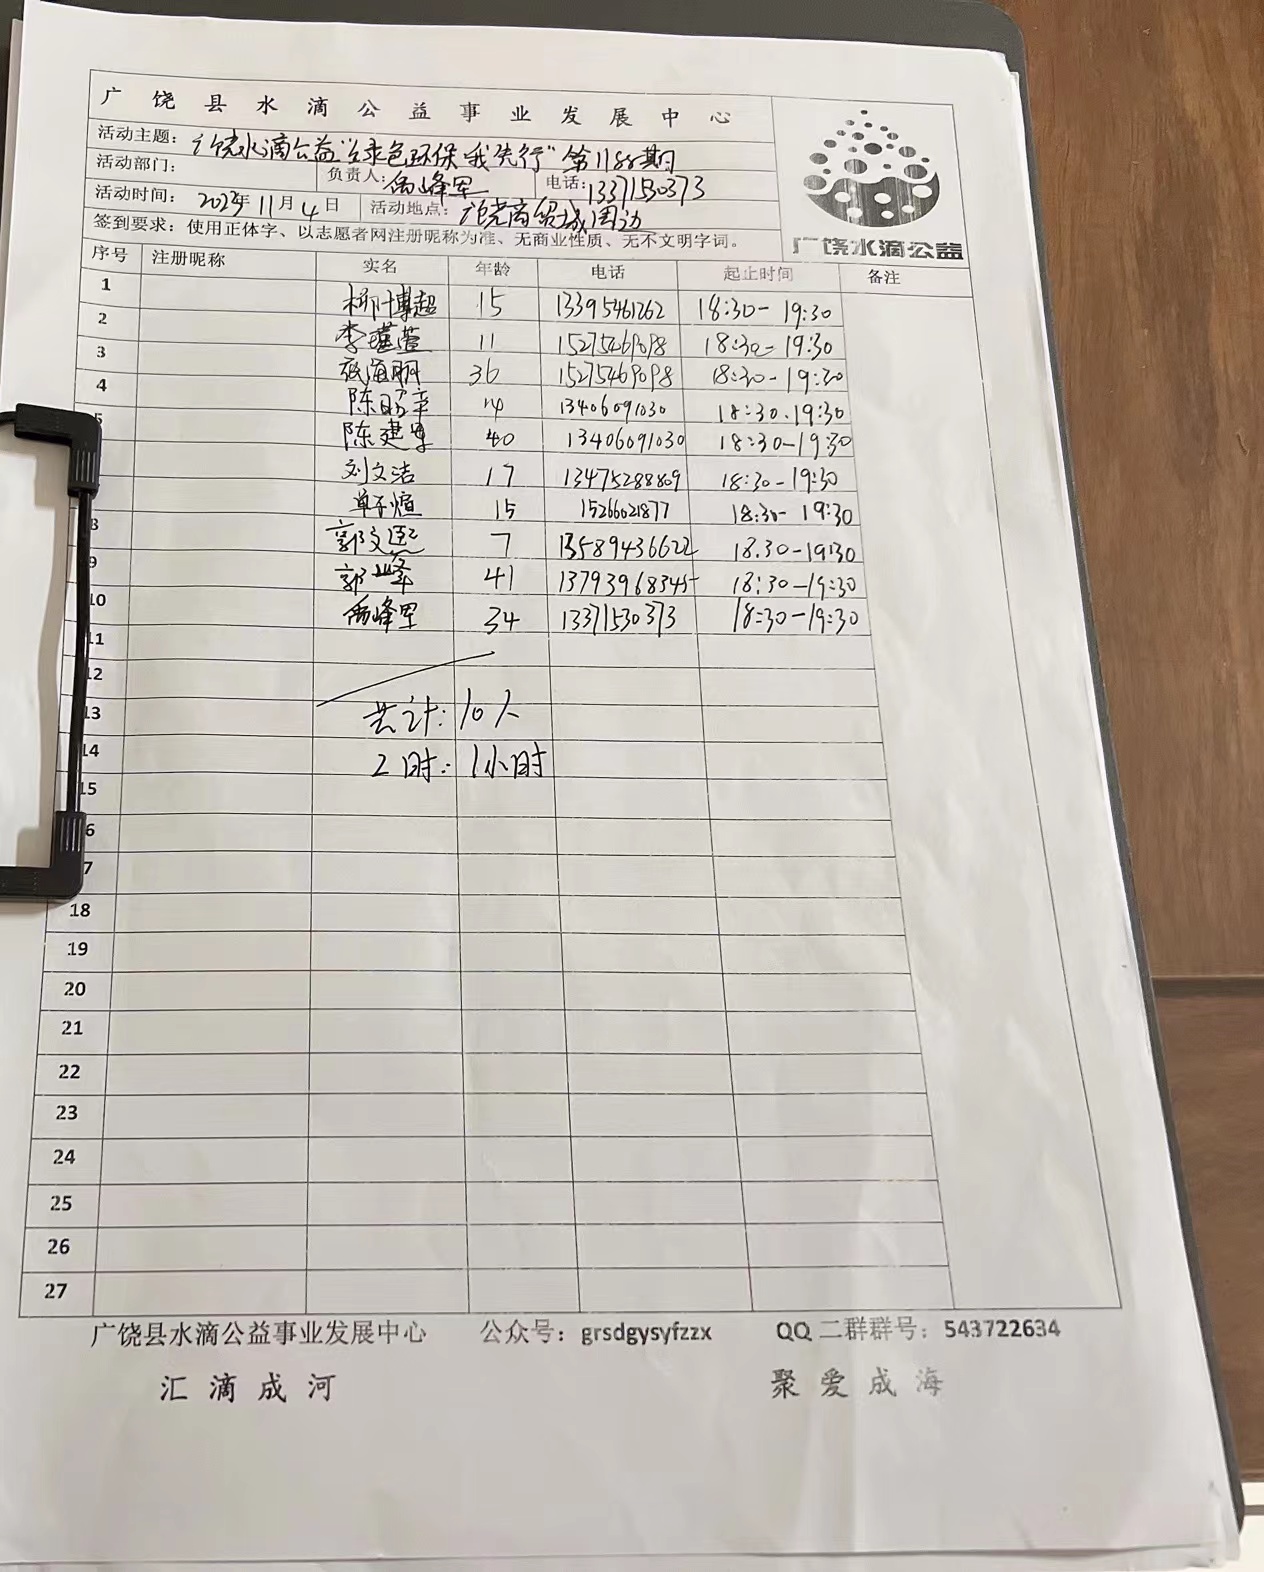 广饶县水滴公益事业发展中心
活动主题：广饶水滴公益"绿色环保 我先行"第1188期
活动部门： 负责人： 电话：13371530373
活动时间：2023年11月4日 活动地点：广饶商贸城周边
签到要求：使用正体字、以志愿者网注册昵称为准、无商业性质、无不文明字词。
广饶水滴公益
序号 注册昵称 实名 年龄 电话 起止时间 备注
1 柳博超 15 13395461262 18:30-19:30
2 李瑾萱 11 15275469098 18:30-19:30
3 张海丽 36 15275469098 18:30-19:30
4 陈昭幸 14 13406091030 18:30-19:30
5 陈建军 40 13406091030 18:30-19:30
刘文洁 17 13475288809 18:30-19:30
单子煊 15 15266021877 18:30-19:30
8 郭文 7 13589436622 18:30-19:30
9 郭峰 41 13793968345 18:30-19:30
10 34 13371530373 18:30-19:30
11
12
13 共计：10人
14 工时：1小时
15
6
7
18
19
20
21
22
23
24
25
26
27
广饶县水滴公益事业发展中心 公众号：grsdgysyfzzx QQ 二群群号：543722634
汇滴成河 聚爱成海